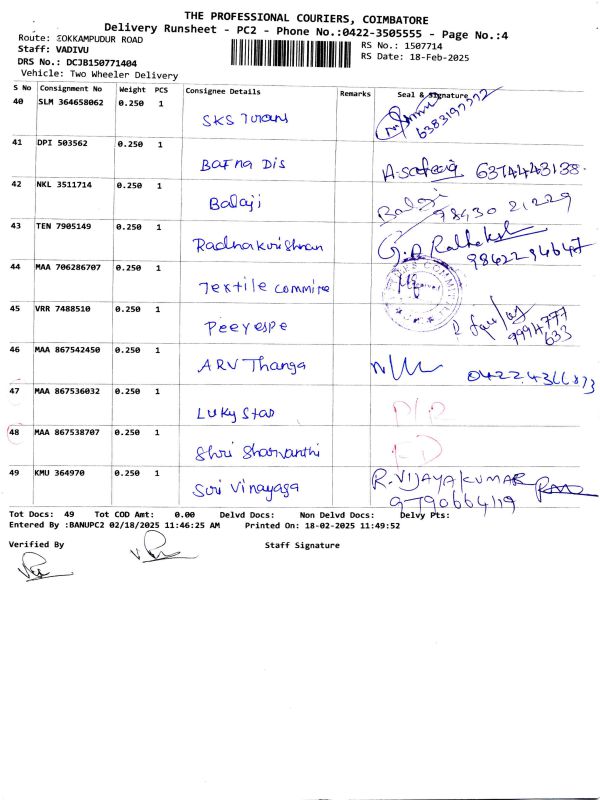 THE PROFESSIONAL COURIERS, COIMBATORE
Delivery Runsheet - PC2 - Phone No.:0422-3505555 - Page No.:4
Route: SOKKAMPUDUR ROAD
RS No.: 1507714
Staff: VADIVU
RS Date: 18-Feb-2025
DRS No.: DCJB150771404
Vehicle: Two Wheeler Delivery
S No Consignment No Weight PCS Consignee Details Remarks Seal & Signature
40 SLM 364658062 0.250 1 SKS Trans 6383197372
41 DPI 503562 0.250 1 Bafna Dis 6374443138.
42 NKL 3511714 0.250 1 Balaji Balaji 98430 21229
43 TEN 7905149 0.250 1 Radhakrishnan 9842294647
44 MAA 706286707 0.250 1 Textile Committe
45 VRR 7488510 0.250 1 Peeyespe 9994777 633
46 MAA 867542450 0.250 1 ARV Thanga 0422 4366873
47 MAA 867536032 0.250 1 Luky Star
48 MAA 867538707 0.250 1 Shri Sharvanthi
49 KMU 364970 0.250 1 Sri Vinayaga R. VIJAYAKUMAR 9790664119
Tot Docs: 49 Tot COD Amt: 0.00 Delvd Docs: Non Delvd Docs: Delvy Pts:
Entered By :BANUPC2 02/18/2025 11:46:25 AM Printed On: 18-02-2025 11:49:52
Verified By Staff Signature